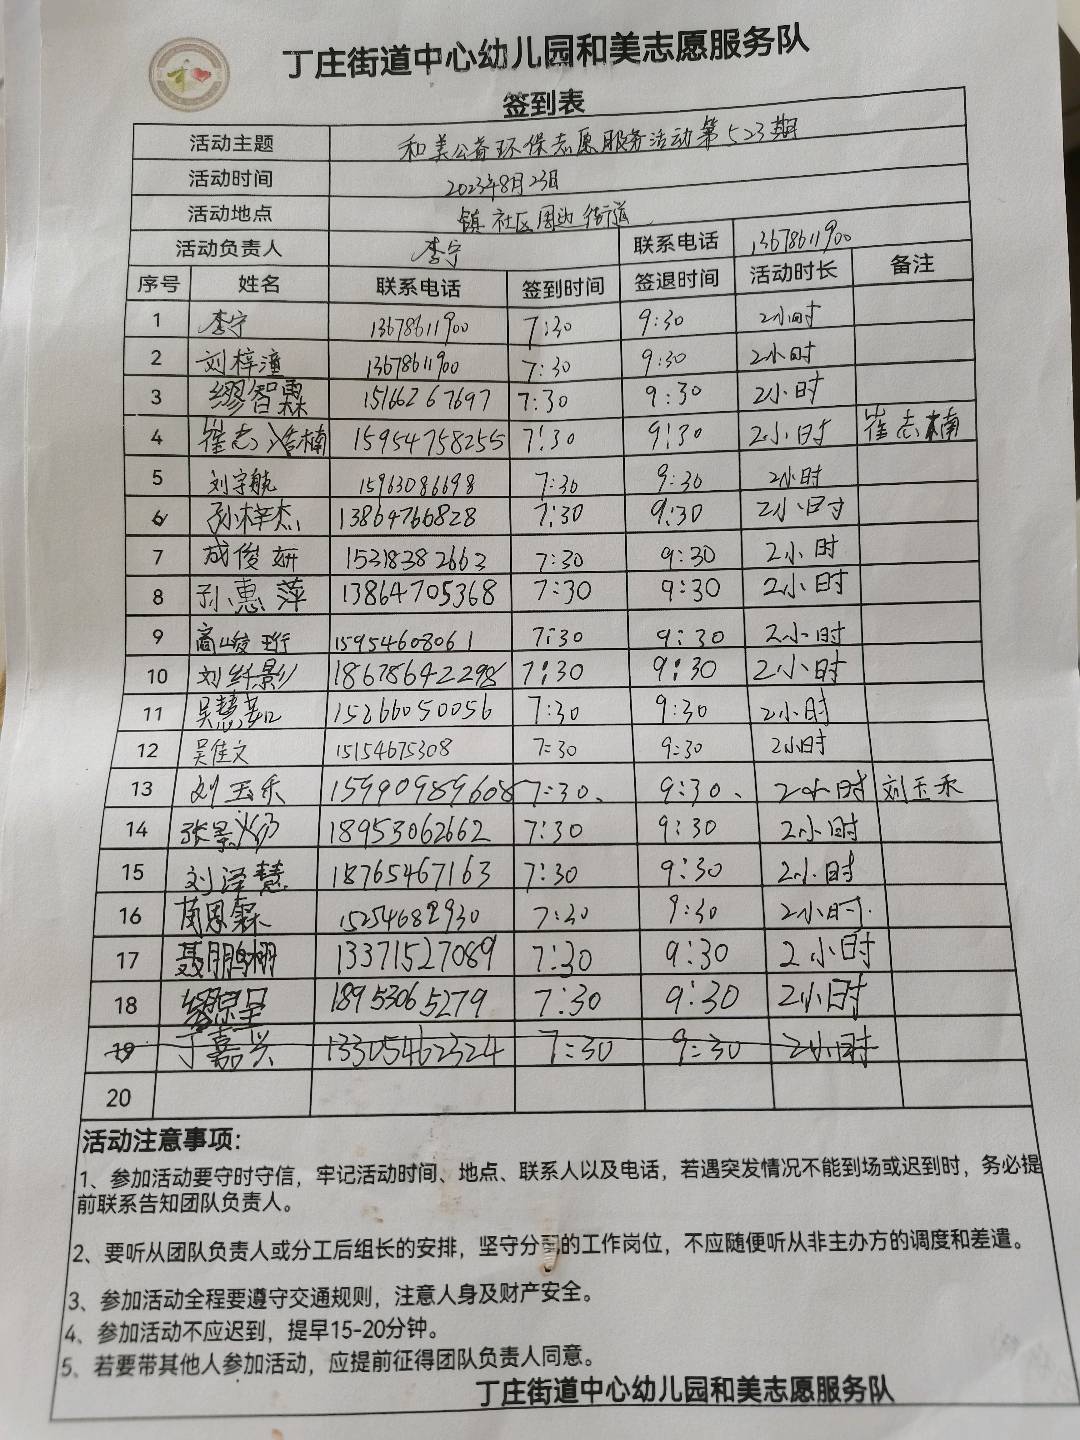 丁庄街道中心幼儿园和美志愿服务队
签到表
活动主题 和美公益环保志愿服务活动第523期
活动时间 2023年8月23日
活动地点 镇社区周边街道
活动负责人 李宁 联系电话 13678611900
序号 姓名 联系电话 签到时间 签退时间 活动时长 备注
1 李宁 13678611900 7:30 9:30 2小时
2 刘梓潼 13678611900 7:30 9:30 2小时
3 缪智霖 15166267697 7:30 9:30 2小时
4 崔志楠 15954758255 7:30 9:30 2小时 崔志楠
5 刘宇航 15963086698 7:30 9:30 2小时
6 孙梓杰 13864766828 7:30 9:30 2小时
7 成俊妍 15318382663 7:30 9:30 2小时
8 孙惠萍 13864705368 7:30 9:30 2小时
9 商峻珩 15954608061 7:30 9:30 2小时
10 刘纤影 18678642298 7:30 9:30 2小时
11 吴慧茹 15266050056 7:30 9:30 2小时
12 吴佳文 15154675308 7:30 9:30 2小时
13 刘玉乐 15990989608 7:30、 9:30、 2小时 刘玉禾
14 张景 18953062662 7:30 9:30 2小时
15 刘泽慧 18765467163 7:30 9:30 2小时
16 苘恩霖 15254682930 7:30 9:30 2小时.
17 聂鹏栩 13371527089 7:30 9:30 2小时
18 缪 18953065279 7:30 9:30 2小时
19 丁嘉兴 13305462324 7:30 9:30 2小时
20
活动注意事项:
1、参加活动要守时守信，牢记活动时间、地点、联系人以及电话，若遇突发情况不能到场或迟到时，务必提
前联系告知团队负责人。
2、要听从团队负责人或分工后组长的安排，坚守分配的工作岗位，不应随便听从非主办方的调度和差遣。
3、参加活动全程要遵守交通规则，注意人身及财产安全。
4、参加活动不应迟到，提早15-20分钟。
5、若要带其他人参加活动，应提前征得团队负责人同意。
丁庄街道中心幼儿园和美志愿服务队